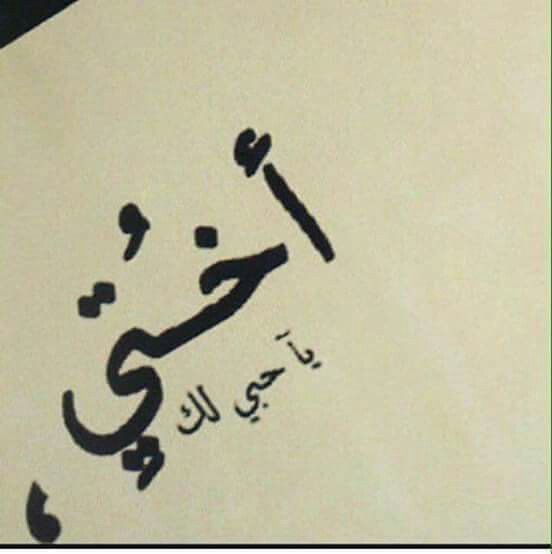 أخُتي ،
يآ حبي لك